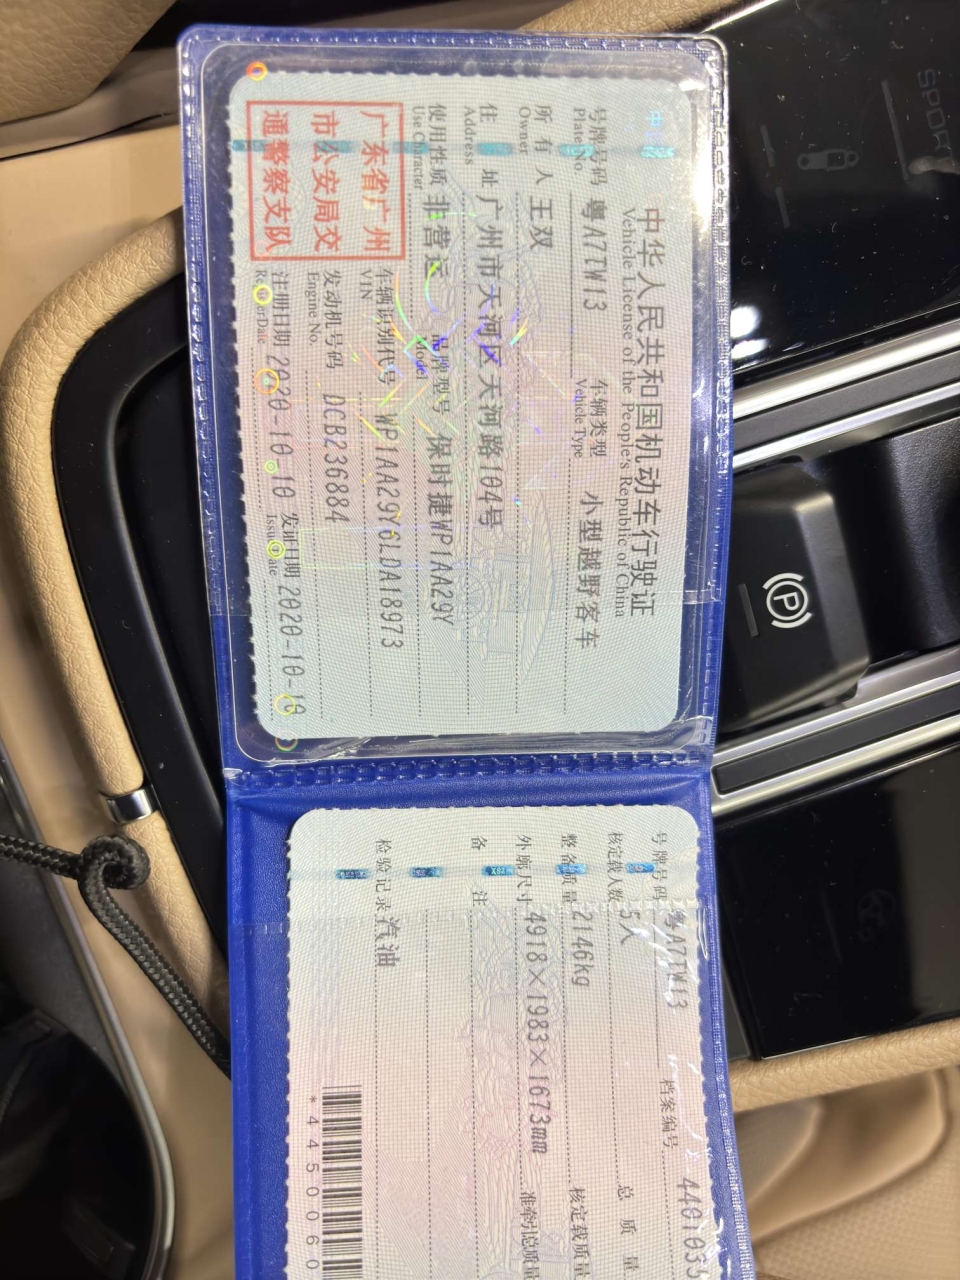 中华人民共和国机动车行驶证
Vehicle License of the People's Republic of China
号牌号码 粤A7TW13 车辆类型 小型越野客车
Plate No. Vehicle Type
所有人 王双
Owner
住址 广州市天河区天河路104号
Address
使用性质 非营运 品牌型号 保时捷WP1AA29Y
Use Character Model
广东省广州
市公安局交
通警察支队
车辆识别代号 WP1AA29Y6LDA18973
VIN
发动机号码 DCB236884
Engine No.
注册日期 2020-10-10 发证日期 2020-10-10
号牌号码 粤A7TW13 档案编号 4401035
核定载人数 5人 总质量
整备质量 2146kg 核定载质量
外廓尺寸 4918×1983×1673mm 准牵引总质量
备注
检验记录 汽油
*4450060
SPORT
P